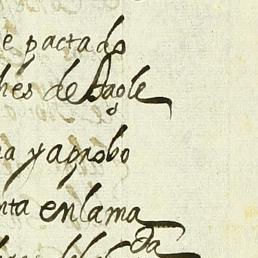 e pactado
hes de Bagle
na y aprobo
nta en la ma
da